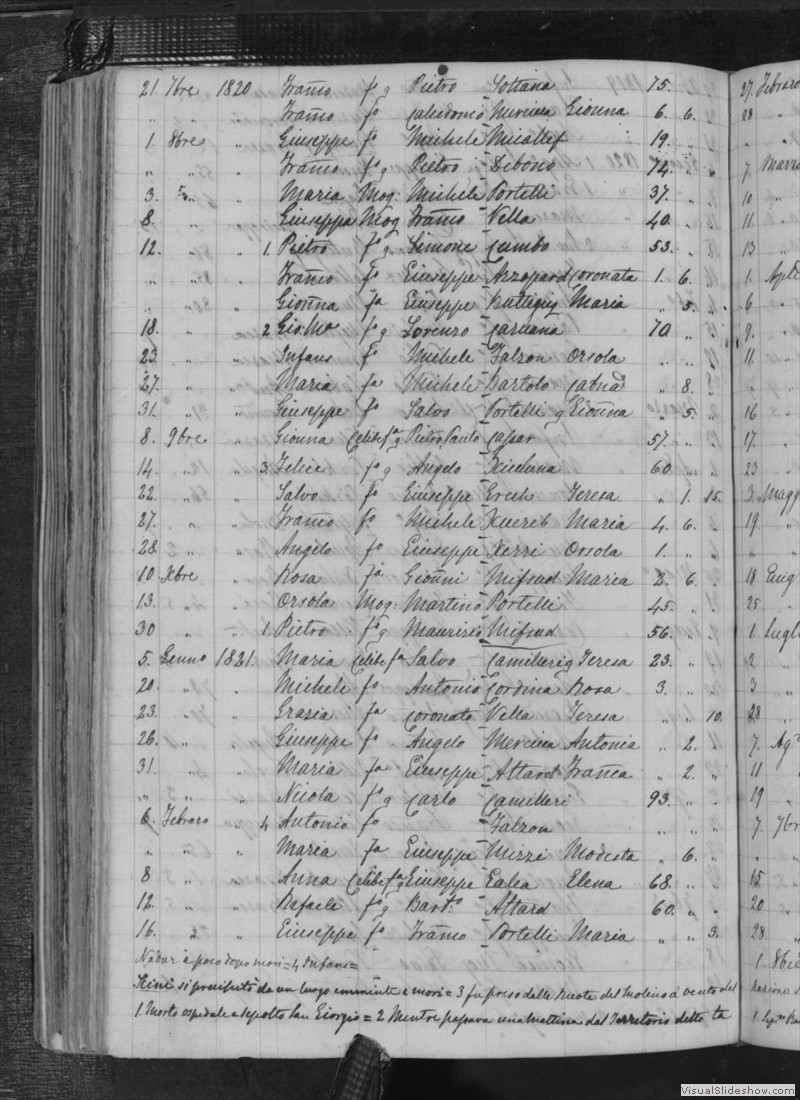 21. 7bre 1820 Franco fo g Pietro Sottana 75. "
" " " Franco fo Calcidonio Mercieca Gionna 6. 6.
1. 8bre " Giuseppe fo Michele Micallef 19. "
" " " Franco fo g Pietro Debono 74. " "
3. " " Maria Mog: Michele Portelli 37. "
8. " " Giuseppa Mog Franco Vella 40. "
12. " " 1. Pietro fo g Simone Cumbo 53. "
" " " Franco fo Giuseppe Azzopard Coronata 1. 6.
" " " Gionna fa Giuseppe Buttigieg Maria " 5. "
18. " " 2 Gio: Ma fo g Lorenzo Caruana 70 " "
23. " " Infans fo Michele Falzon Orsola " " "
27. " " Maria fa Michele Bartolo " 8. "
31. " " Giuseppe fo Salvo Portelli g Gionna " 5. "
8. 9bre " Gionna Celibe fa g Pietro Paulo Caspar 57. "
14. " " 3. Felice fo g Angelo 60 " "
22. " " Salvo fo Giuseppe Grech Teresa " 1. 15.
27. " " Franco fo Michele Xuereb Maria 4. 6. "
28. " " Angelo fo Giuseppe Xerri Orsola 1. " "
10 Xbre " Rosa fa Gionni Mifsud Maria 2. 6. "
13. " " Orsola Mog: Martino Portelli 45. " "
30 " " 1. Pietro fo g Maurizio Mifsud 56. " "
5. Genno 1821. Maria Celibe fa Salvo Camilleri g Teresa 23. " "
20. " " Michele fo Antonio Cordina Rosa 3. " "
23. " " Grazia fa Coronato Vella Teresa " " 10.
26. " " Giuseppe fo Angelo Mercieca Antonia " 2. "
31. " " Maria fa Giuseppe Attard Franca " 2. "
" " " Nicola fo g Carlo Camilleri 93. " "
6. Febraro " 4 Antonio fo Falzon " " "
" " " Maria fa Giuseppe Mizzi Modesta " 6. "
8 " " Anna Celibe fa g Giuseppe Galea Elena 68. " "
12. " " Rafaele fo g Barto Attard 60. " "
16. " " Giuseppe fo Franco Portelli Maria " " 3.
Nadur e poco dopo mori = 4 Infans =
si precipitò da un luogo eminente e mori = 3 fu preso dalle Ruote del Molino a vento del
1. Morto ospedale e sepolto San Giorgio = 2 Mentre passava una mattina dal Territorio detto ta
27. Febraro
28 "
7 Marzo
10 "
11 "
13 "
1. Aple
6 "
9. "
11. "
" "
16 "
17. "
23 "
3. Magg
19 "
" "
18 Giug
25 "
1. Lugl
2 "
3 "
28 "
7. Ago
11 "
19 "
7. 7br
" "
15 "
20 "
28 "
1. 8bre
1.
VisualSlideshow.com